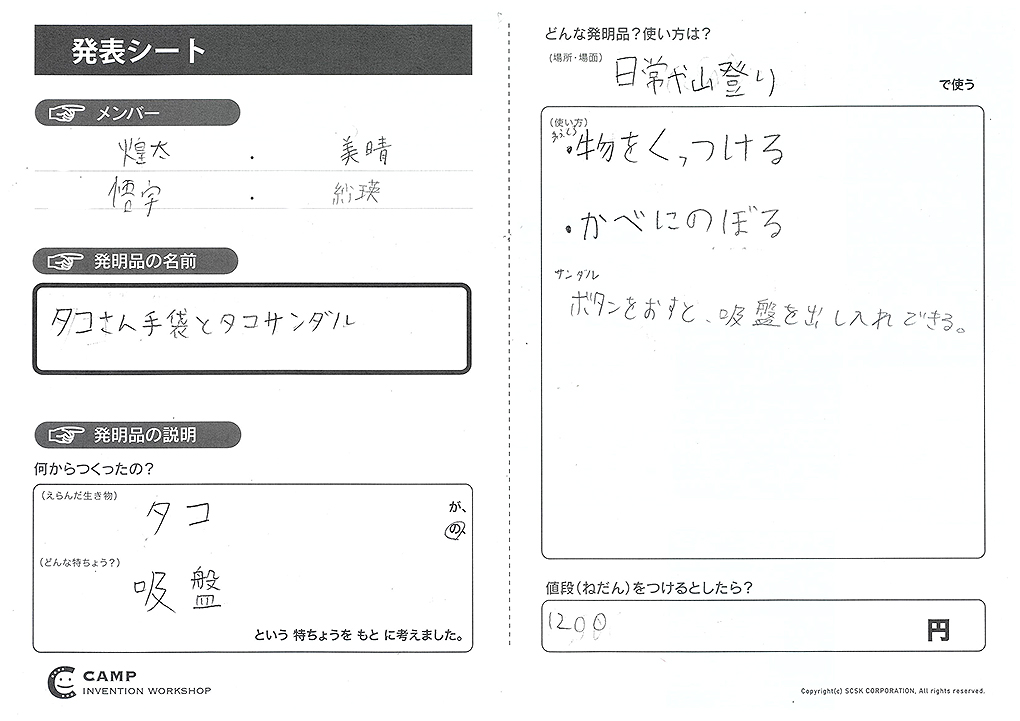 発表シート
メンバー
煌太 ・ 美晴
悟宇 ・ 紗瑛
発明品の名前
タコさん手袋とタコサンダル
発明品の説明
何からつくったの?
(えらんだ生き物)
タコ
が、
の、
(どんな特ちょう?)
吸盤
という 特ちょうを もと に考えました。
CAMP
INVENTION WORKSHOP
どんな発明品?使い方は?
(場所・場面)
日常や山登り
で使う
(使い方)
・物をくっつける
・かべにのぼる
サンダル
ボタンをおすと、吸盤を出し入れできる。
値段(ねだん)をつけるとしたら?
1200
円
Copyright(c) SCSK CORPORATION, All rights reserved.